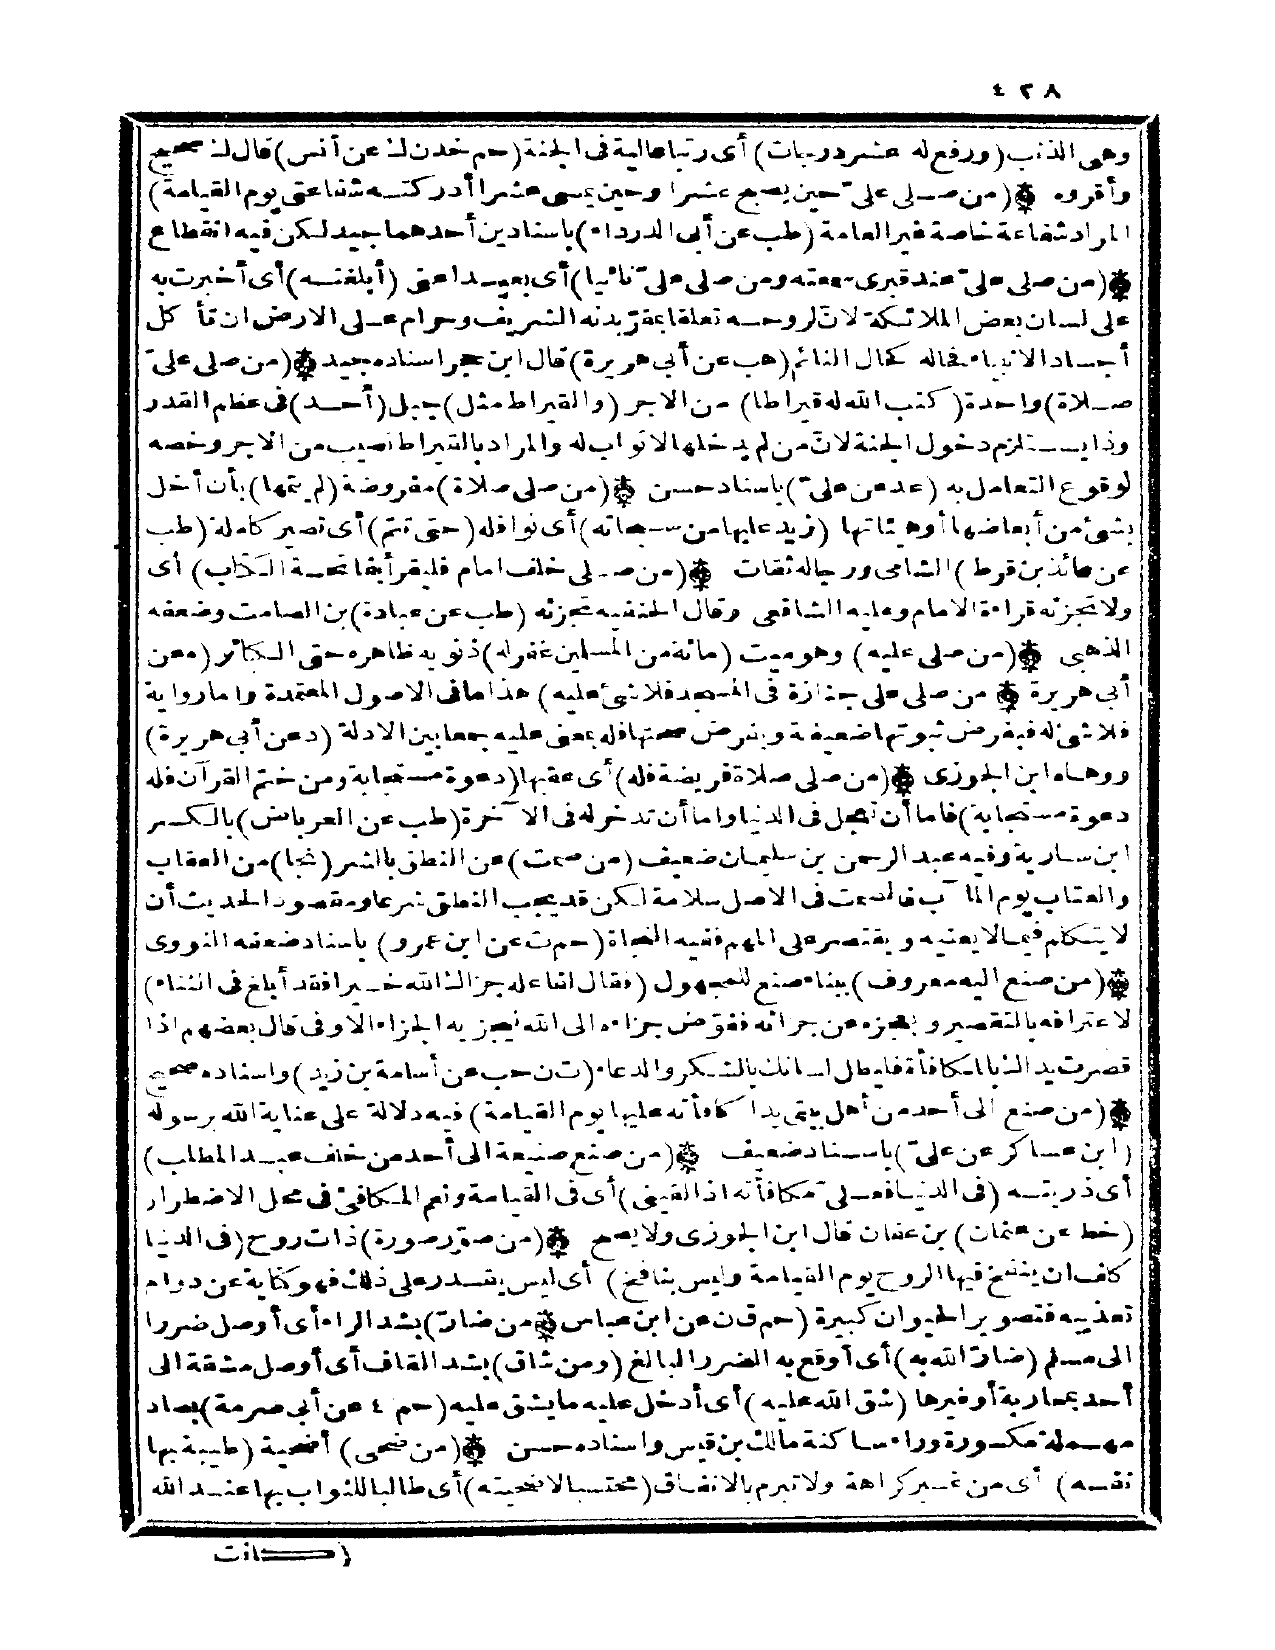 ٤٢٨
وهى الذنب (ورفع له عشر درجات) أى رتبا عالية فى الجنة (حم خدن ك عن أنس) قال ك صحيح
وأقروه ۞ (من صلى علىّ حين يصبح عشرا وحين يمسى عشرا أدركته شفاعتى يوم القيامة)
المراد شفاعة خاصة غير العامة (طب عن أبى الدرداء) باسنادين أحدهما جيد لكن فيه انقطاع
۞ (من صلى علىّ عند قبرى سمعته ومن صلى علىّ نائيا) أى بعيدا عنى (أبلغته) أى أخبرت به
على لسان بعض الملائكة لانّ لروحه تعلقا بمقرّ بدنه الشريف وحرام على الارض ان تأكل
أجساد الانبياء فحاله كحال النائم (هب عن أبى هريرة) قال ابن حجر اسناده جيد ۞ (من صلى علىّ
صلاة) واحدة (كتب الله له قيراطا) من الاجر (والقيراط مثل) جبل (أحد) فى عظم القدر
وذا يستلزم دخول الجنة لانّ من لم يدخلها لا ثواب له والمراد بالقيراط نصيب من الاجر وخصه
لوقوع التعامل به (عد عن علىّ) باسناد حسن ۞ (من صلى صلاة) مفروضة (لم يتمها) بأن أخل
بشئ من أبعاضها أو هيئاتها (زيد عليها من سبحاته) أى نوافله (حتى تتم) أى تصير كاملة (طب
عن عائذ بن قرط) الشامى ورجاله ثقات ۞ (من صلى خلف امام فليقرأ بفاتحة الكتاب) أى
ولا تجزئه قراءة الامام وعليه الشافعى وقال الحنفيه تجزئه (طب عن عبادة) بن الصامت وضعفه
الذهبى ۞ (من صلى عليه) وهو ميت (مائة من المسلمين غفر له) ذنوبه ظاهره حتى الكبائر (ه عن
أبى هريرة ۞ من صلى على جنازة فى المسجد فلا شئ عليه) هذا ما فى الاصول المعتمدة واما رواية
فلا شئ له فبفرض ثبوتها ضعيفة وبفرض صحتها فله بمعنى عليه جمعا بين الادلة (د عن أبى هريرة)
ووهاه ابن الجوزى ۞ (من صلى صلاة فريضة فله) أى عقبها (دعوة مستجابة ومن ختم القرآن فله
دعوة مستجابة) فاما أن تعجل فى الدنيا واما أن تدخر له فى الآخرة (طب عن العرباض) بالكسر
ابن سارية وفيه عبد الرحمن بن سليمان ضعيف (من صمت) عن النطق بالشر (نجا) من العقاب
والعتاب يوم المآب فالصمت فى الاصل سلامة لكن قد يجب النطق شرعا ومقصود الحديث أن
لا يتكلم فيما لا يعنيه ويقتصر على المهم ففيه النجاة (حم ت عن ابن عمرو) باسناد ضعفه النووى
۞ (من صنع اليه معروف) ببناء صنع للمجهول (فقال لفاعله جزاك الله خيرا فقد أبلغ فى الثناء)
لاعترافه بالتقصير وبعجزه عن جزائه ففوّض جزاءه الى الله ليجزيه الجزاء الاوفى قال بعضهم اذا
قصرت يداك بالمكافأة فليطل لسانك بالشكر والدعاء (ت ن حب عن أسامة بن زيد) واسناده صحيح
۞ (من صنع الى أحد من أهل بيتى يدا كافأته عليها يوم القيامة) فيه دلالة على عناية الله برسوله
(ابن عساكر عن علىّ) باسناد ضعيف ۞ (من صنع صنيعة الى أحد من خلف عبد المطلب)
أى ذريته (فى الدنيا فعلىّ مكافأته اذا لقينى) أى فى القيامة ونعم المكافئ فى محل الاضطرار
(خط عن عثمان) بن عفان قال ابن الجوزى ولا يصح ۞ (من صوّر صورة) ذات روح (فى الدنيا
كلف ان ينفخ فيها الروح يوم القيامة وليس بنافخ) أى ليس يقدر على ذلك فهو كناية عن دوام
تعذيبه فتصوير الحيوان كبيرة (حم ق ن عن ابن عباس ۞ من ضارّ) بشد الراء أى أوصل ضررا
الى مسلم (ضارّ الله به) أى أوقع به الضرر البالغ (ومن شاق) بشد القاف أى أوصل مشقة الى
أحد بمحاربة أو غيرها (شق الله عليه) أى أدخل عليه ما يشق عليه (حم ٤ عن أبى صرمة) بصاد
مهملة مكسورة وراء ساكنة مالك بن قيس واسناده حسن ۞ (من ضحى) أضحية (طيبة بها
نفسه) أى من غير كراهة ولا تبرم بالانفاق (محتسبا لاضحيته) أى طالبا للثواب بها عند الله
(كانت